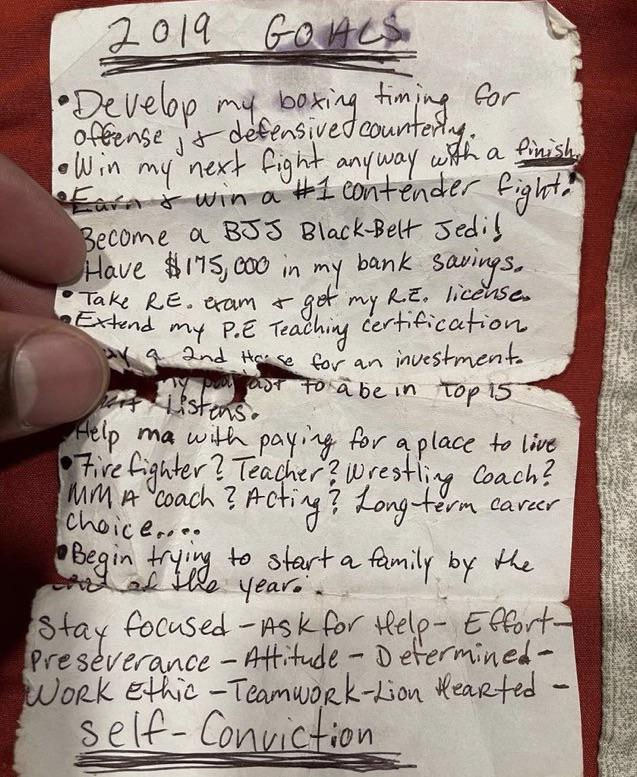 2019 GOALS
• Develop my boxing timing for
offense, & defensive countering.
• Win my next fight anyway with a finish.
• Earn & win a #1 contender fight.
Become a BJJ Black-Belt Jedi!
Have $175,000 in my bank savings.
• Take R.E. exam & get my R.E. license.
• Extend my P.E Teaching certification
a 2nd House for an investment.
my podcast to a be in Top 15
listens.
Help ma with paying for a place to live
• Firefighter? Teacher? Wrestling Coach?
MMA coach? Acting? Long-term career
choice....
• Begin trying to start a family by the
end of the year.
Stay focused - Ask for Help - Effort -
Preseverance - Attitude - Determined -
Work Ethic - Teamwork - Lion Hearted -
Self-Conviction